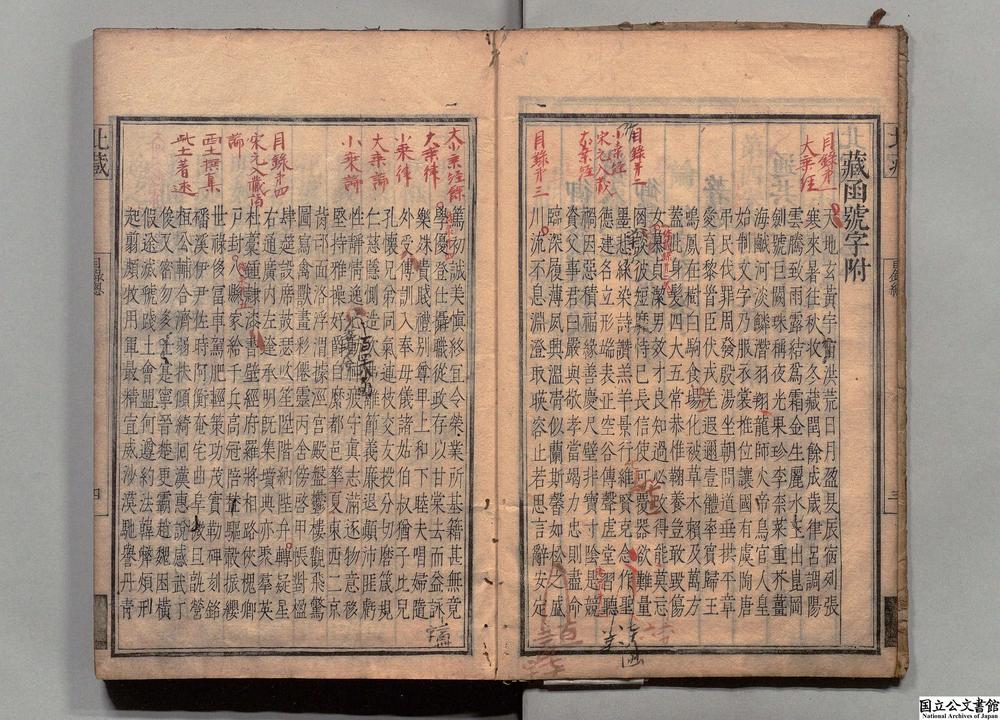 北藏函號字附
目錄第一
大乘經
天地玄黃宇宙洪荒日月盈昃辰宿列張
寒來暑往秋收冬藏閏餘成歲律呂調陽
雲騰致雨露結爲霜金生麗水玉出崑岡
劍號巨闕珠稱夜光果珍李柰菜重芥薑
海鹹河淡鱗潛羽翔龍師火帝鳥官人皇
始制文字乃服衣裳推位讓國有虞陶唐
弔民伐罪周發殷湯坐朝問道垂拱平章
愛育黎首臣伏戎羌遐邇壹體率賓歸王
鳴鳳在樹白駒食場化被草木賴及萬方
蓋此身髮四大五常恭惟鞠養豈敢毀傷
女慕貞潔男效才良知過必改得能莫忘
目錄第二
小乘經
宋元入藏
大乘經
罔談彼短靡恃己長信使可覆器欲難量
墨悲絲染詩讚羔羊景行維賢克念作聖
德建名立形端表正空谷傳聲虛堂習聽
禍因惡積福緣善慶尺璧非寶寸陰是競
資父事君曰嚴與敬孝當竭力忠則盡命
臨深履薄夙興溫凊似蘭斯馨如松之盛
目錄第三
川流不息淵澄取暎容止若思言辭安定
三
大小乘經餘
篤初誠美慎終宜令榮業所基籍甚無竟
大乘律
學優登仕攝職從政存以甘棠去而益詠
樂殊貴賤禮別尊卑上和下睦夫唱婦隨
小乘律
外受傅訓入奉母儀諸姑伯叔猶子比兒
大乘論
孔懷兄弟同氣連枝交友投分切磨箴規
仁慈隱惻造次弗離節義廉退顛沛匪虧
小乘論
性靜情逸心動神疲守真志滿逐物意移
堅持雅操好爵自縻都邑華夏東西二京
背邙面洛浮渭據涇宮殿盤鬱樓觀飛驚
圖寫禽獸畫彩僊靈丙舍傍啓甲帳對楹
目錄第四
肆筵設席鼓瑟吹笙陞階納陛弁轉疑星
右通廣內左達承明既集墳典亦聚羣英
宋元入藏諸論
杜藁鍾隸漆書壁經府羅將相路俠槐卿
戶封八縣家給千兵高冠陪輦驅轂振纓
西土撰集
世祿侈富車駕肥輕策功茂實勒碑刻銘
磻溪伊尹佐時阿衡奄宅曲阜微旦孰營
此土著述
桓公輔合濟弱扶傾綺迴漢惠說感武丁
俊乂密勿多士寔寧晉楚更霸趙魏困橫
假途滅虢踐土會盟何遵約法韓弊煩刑
起翦頗牧用軍最精宣威沙漠馳譽丹青
北藏
目錄總
四
国立公文書館
National Archives of Japan